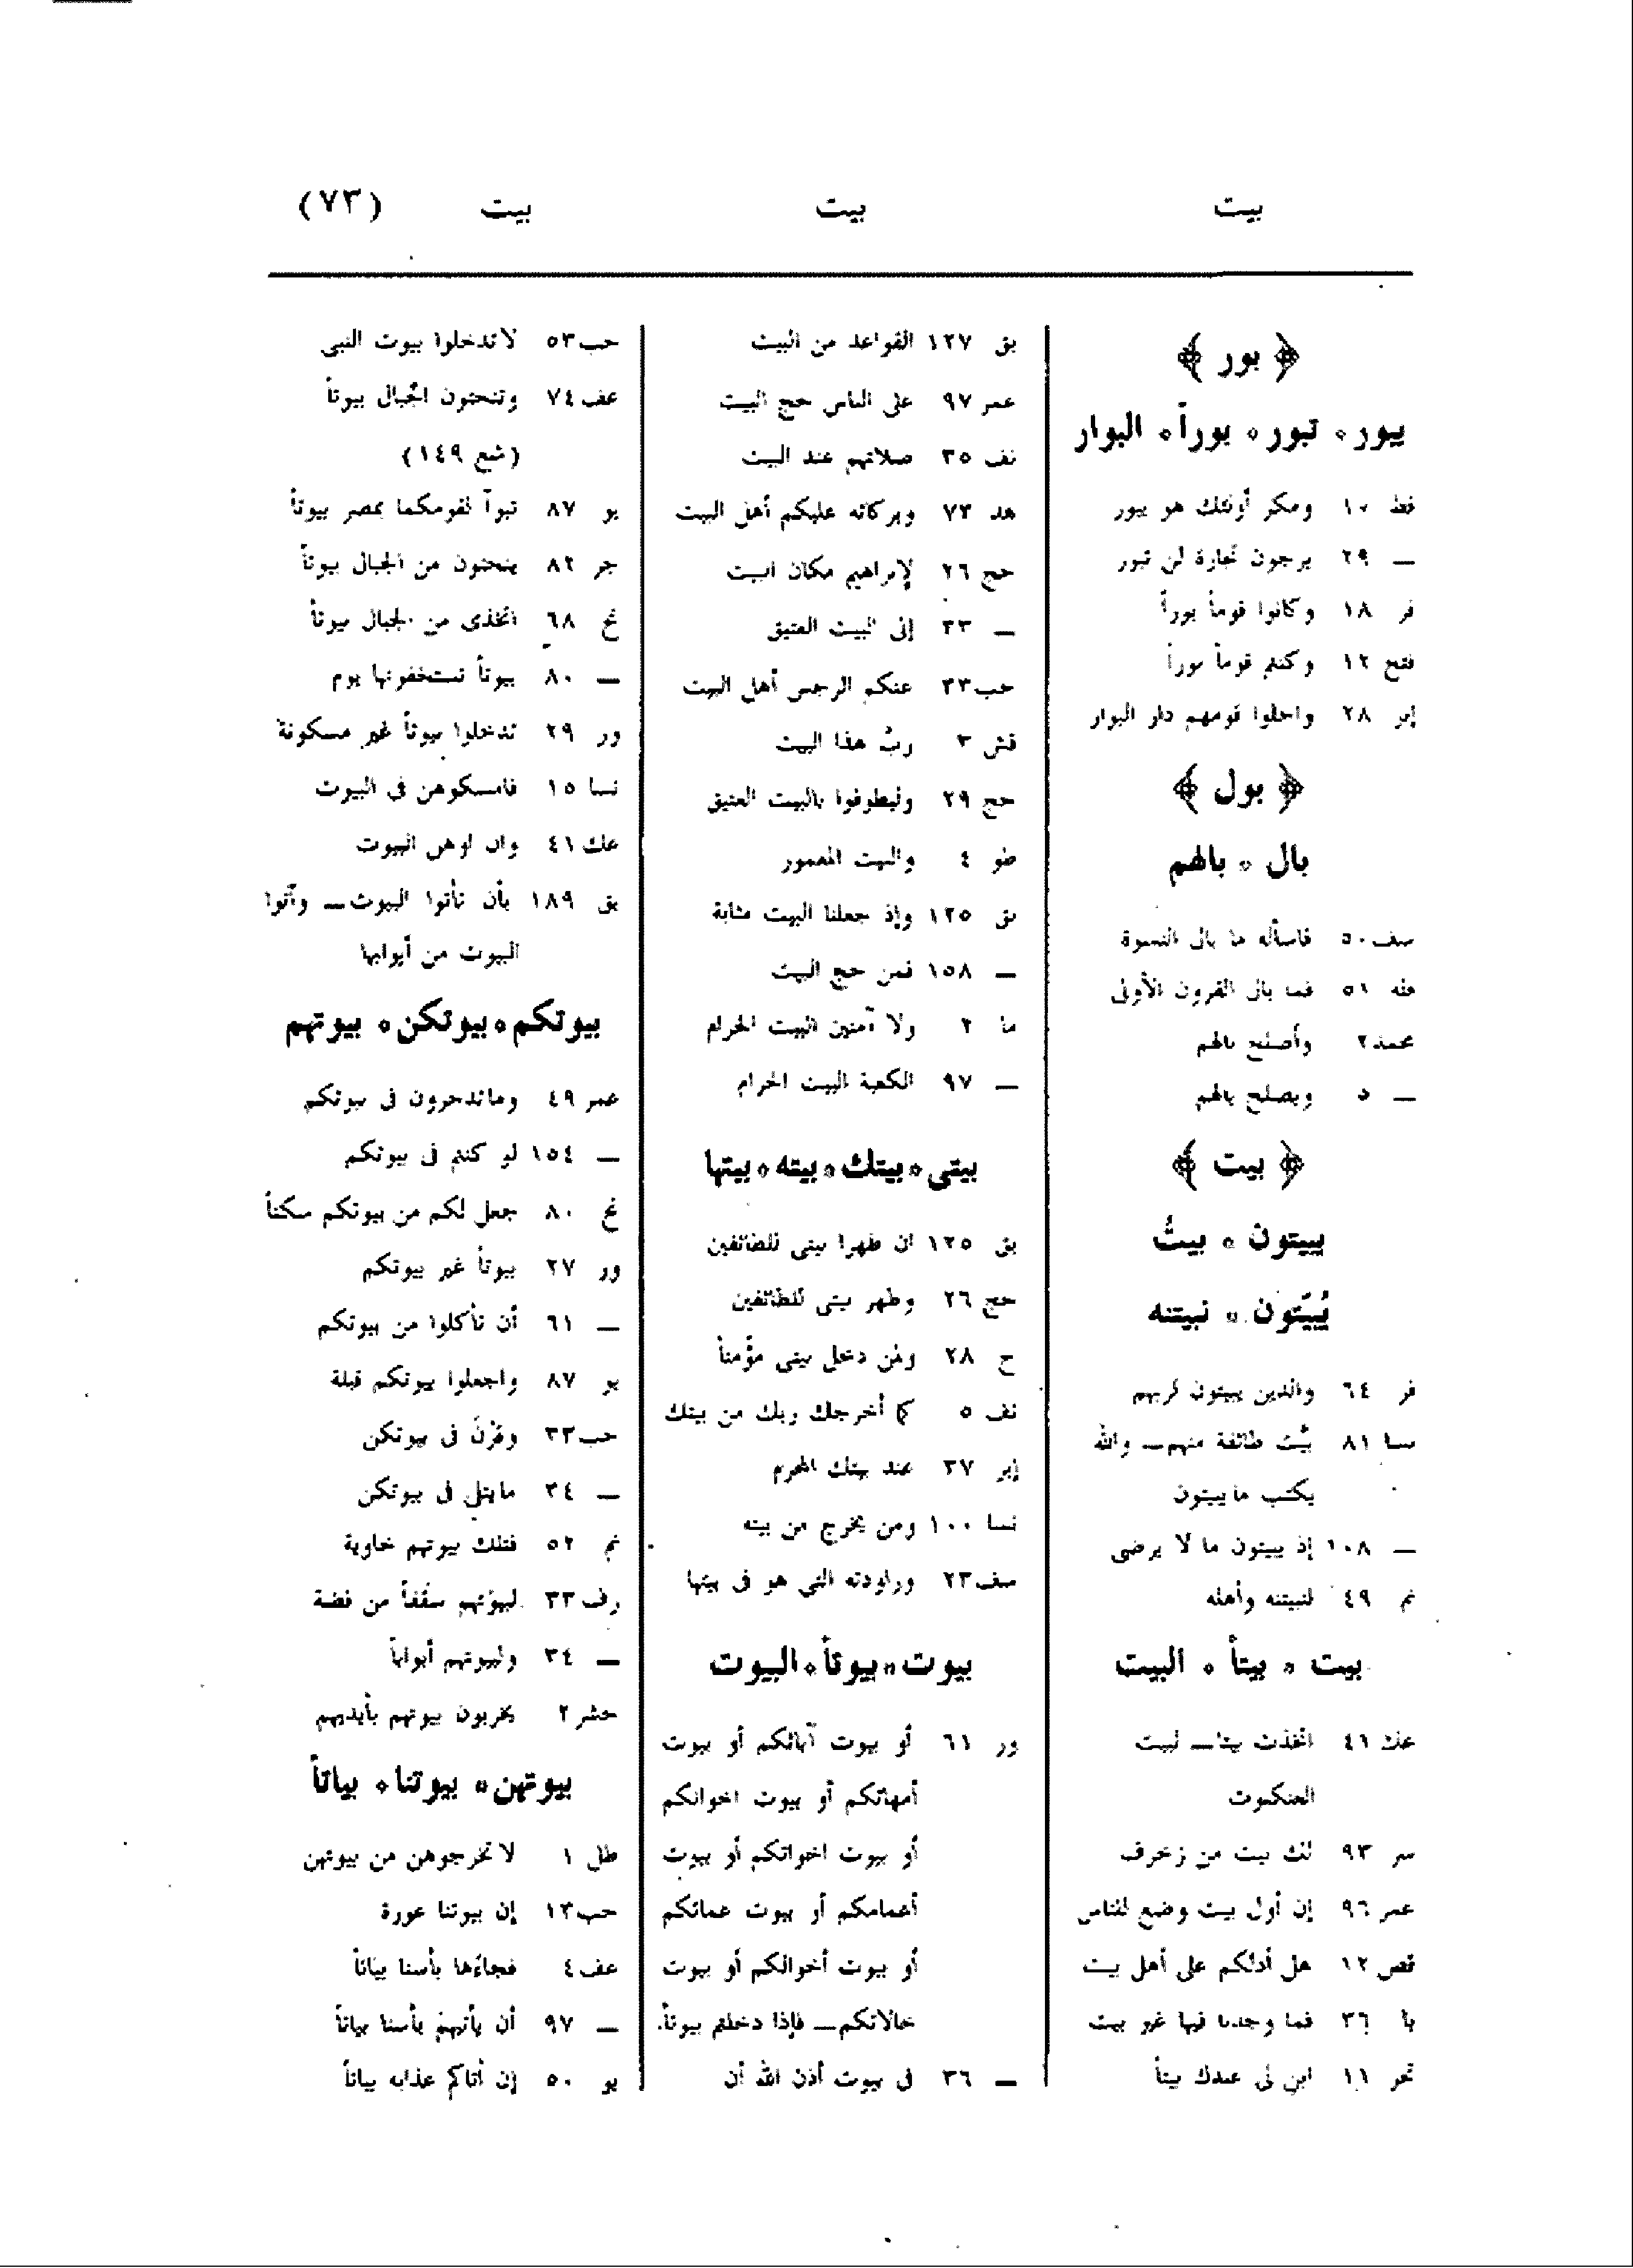 بيت
بيت
بيت
(٧٣)
﴿ بور ﴾
يبور ٠ تبور ٠ بوراً ٠ البوار
فط ١٠ ومكر أولئك هو يبور
— ٢٩ يرجون تجارة لن تبور
فر ١٨ وكانوا قوماً بوراً
فتح ١٢ وكنتم قوماً بوراً
إبر ٢٨ واحلوا قومهم دار البوار
﴿ بول ﴾
بال ٠ بالهم
سف ٥٠ فاسأله ما بال النسوة
طه ٥١ فما بال القرون الأولى
محمد ٢ وأصلح بالهم
— ٥ ويصلح بالهم
﴿ بيت ﴾
يبيتون ٠ بيتُ
يُبَيّتون ٠ نبيتنه
فر ٦٤ والذين يبيتون لربهم
نسا ٨١ بيَّت طائفة منهم — والله
يكتب ما يبيتون
— ١٠٨ إذ يبيتون ما لا يرضى
نم ٤٩ لنبيتنه وأهله
بيت ٠ بيتاً ٠ البيت
عنك ٤١ اتخذت بيتا — لبيت
العنكبوت
سر ٩٣ لك بيت من زخرف
عمر ٩٦ إن أول بيت وضع للناس
قص ١٢ هل أدلكم على أهل بيت
يا ٣٦ فما وجدنا فيها غير بيت
تحر ١١ ابن لى عندك بيتاً
بق ١٢٧ القواعد من البيت
عمر ٩٧ على الناس حج البيت
نف ٣٥ صلاتهم عند البيت
هد ٧٣ وبركاته عليكم أهل البيت
حج ٢٦ لإبراهيم مكان البيت
— ٣٣ إلى البيت العتيق
حب ٣٣ عنكم الرجس أهل البيت
قش ٣ ربَّ هذا البيت
حج ٢٩ وليطوفوا بالبيت العتيق
طو ٤ والبيت المعمور
بق ١٢٥ وإذ جعلنا البيت مثابة
— ١٥٨ فمن حج البيت
ما ٢ ولا آمنين البيت الحرام
— ٩٧ الكعبة البيت الحرام
بيتى ٠ بيتك ٠ بيته ٠ بيتها
بق ١٢٥ ان طهرا بيتى للطائفين
حج ٢٦ وطهر بيتى للطائفين
ح ٢٨ ولمن دخل بيتى مؤمناً
نف ٥ كما أخرجك ربك من بيتك
إبر ٣٧ عند بيتك المحرم
نسا ١٠٠ ومن يخرج من بيته
سف ٢٣ وراودته التى هو فى بيتها
بيوت ٠ بيوتاً ٠ البيوت
ور ٦١ أو بيوت آبائكم أو بيوت
أمهاتكم أو بيوت اخوانكم
أو بيوت اخواتكم أو بيوت
أعمامكم أو بيوت عماتكم
أو بيوت أخوالكم أو بيوت
خالاتكم — فإذا دخلتم بيوتاً
— ٣٦ فى بيوت أذن الله أن
حب ٥٣ لا تدخلوا بيوت النبى
عف ٧٤ وتنحتون الجبال بيوتاً
(شع ١٤٩)
يو ٨٧ تبوآ لقومكما بمصر بيوتاً
جر ٨٢ ينحتون من الجبال بيوتاً
نح ٦٨ اتخذى من الجبال بيوتاً
— ٨٠ بيوتاً تستخفونها يوم
ور ٢٩ تدخلوا بيوتاً غير مسكونة
نسا ١٥ فامسكوهن فى البيوت
عنك ٤١ وان اوهن البيوت
بق ١٨٩ بأن تأتوا البيوت — وأتوا
البيوت من أبوابها
بيوتكم ٠ بيوتكن ٠ بيوتهم
عمر ٤٩ وما تدخرون فى بيوتكم
— ١٥٤ لو كنتم فى بيوتكم
نح ٨٠ جعل لكم من بيوتكم سكناً
ور ٢٧ بيوتاً غير بيوتكم
— ٦١ أن تأكلوا من بيوتكم
يو ٨٧ واجعلوا بيوتكم قبلة
حب ٣٣ وقرْنَ فى بيوتكن
— ٣٤ ما يتلى فى بيوتكن
نم ٥٢ فتلك بيوتهم خاوية
رف ٣٣ لبيوتهم سقُفاً من فضة
— ٣٤ ولبيوتهم أبواباً
حشر ٢ يخربون بيوتهم بأيديهم
بيوتهن ٠ بيوتنا ٠ بياتاً
طل ١ لا تخرجوهن من بيوتهن
حب ١٣ إن بيوتنا عورة
عف ٤ فجاءها بأسنا بياتاً
— ٩٧ أن يأتيهم بأسنا بياتاً
يو ٥٠ إن أتاكم عذابه بياتاً